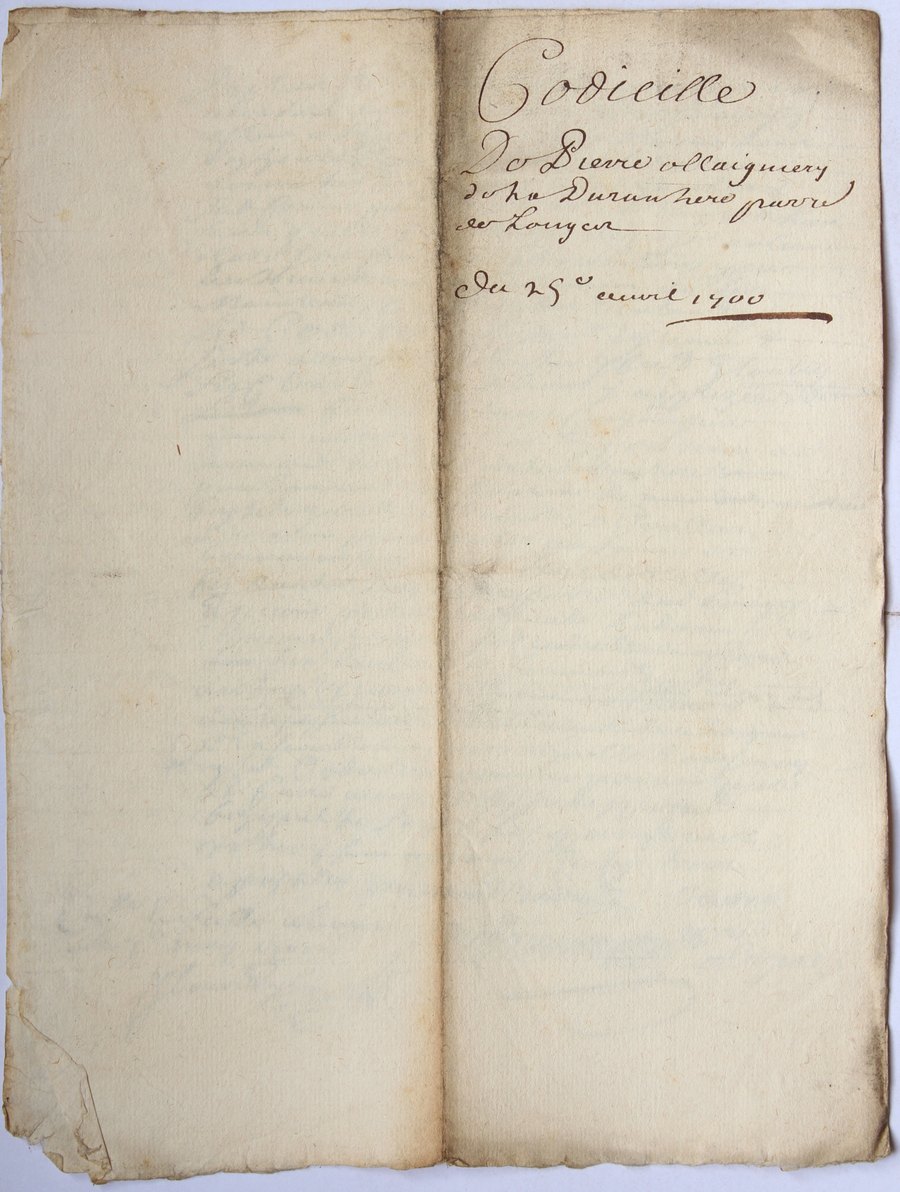 Codicille
De Pierre ollaigniery
de la Duranthere parre
de Longes
du 25e auvril 1700